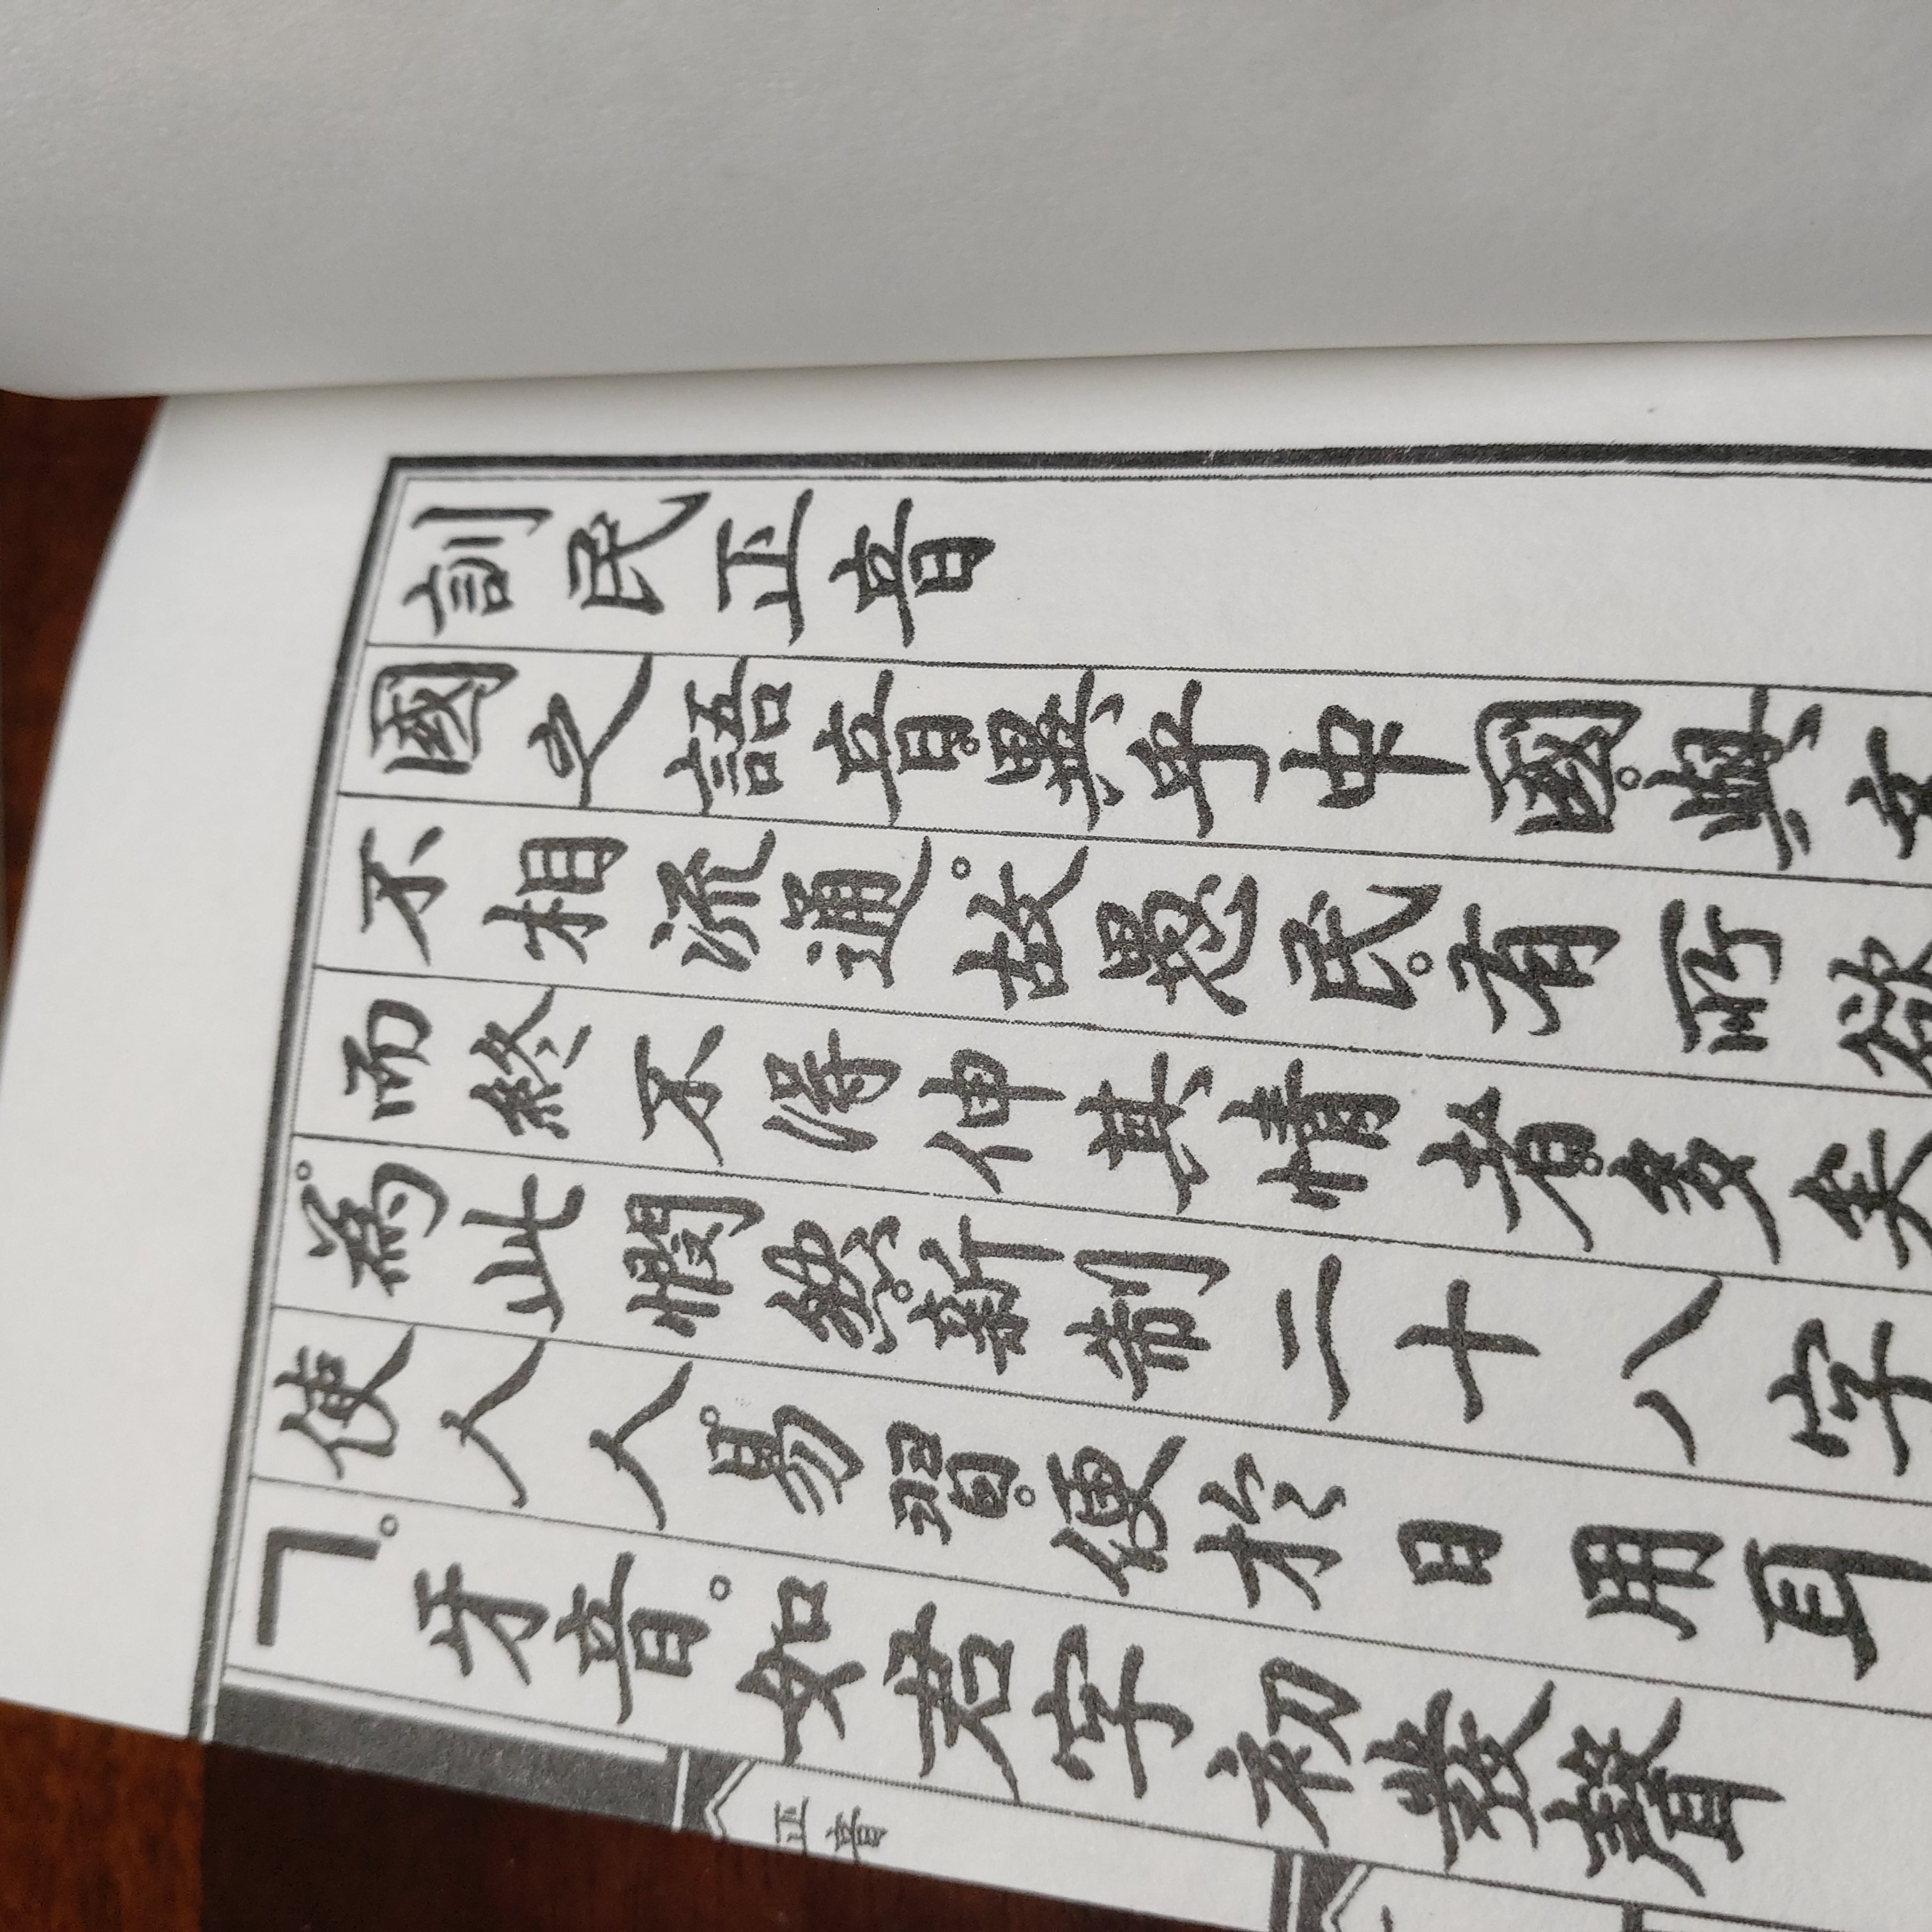 訓民正音
國之語音。異乎中國。與文
不相流通。故愚民。有所欲
而終不得伸其情者。多矣
爲此憫然。新制二十八字
使人人易習。便於日用耳
ㄱ。牙音。如君字初發聲
正音